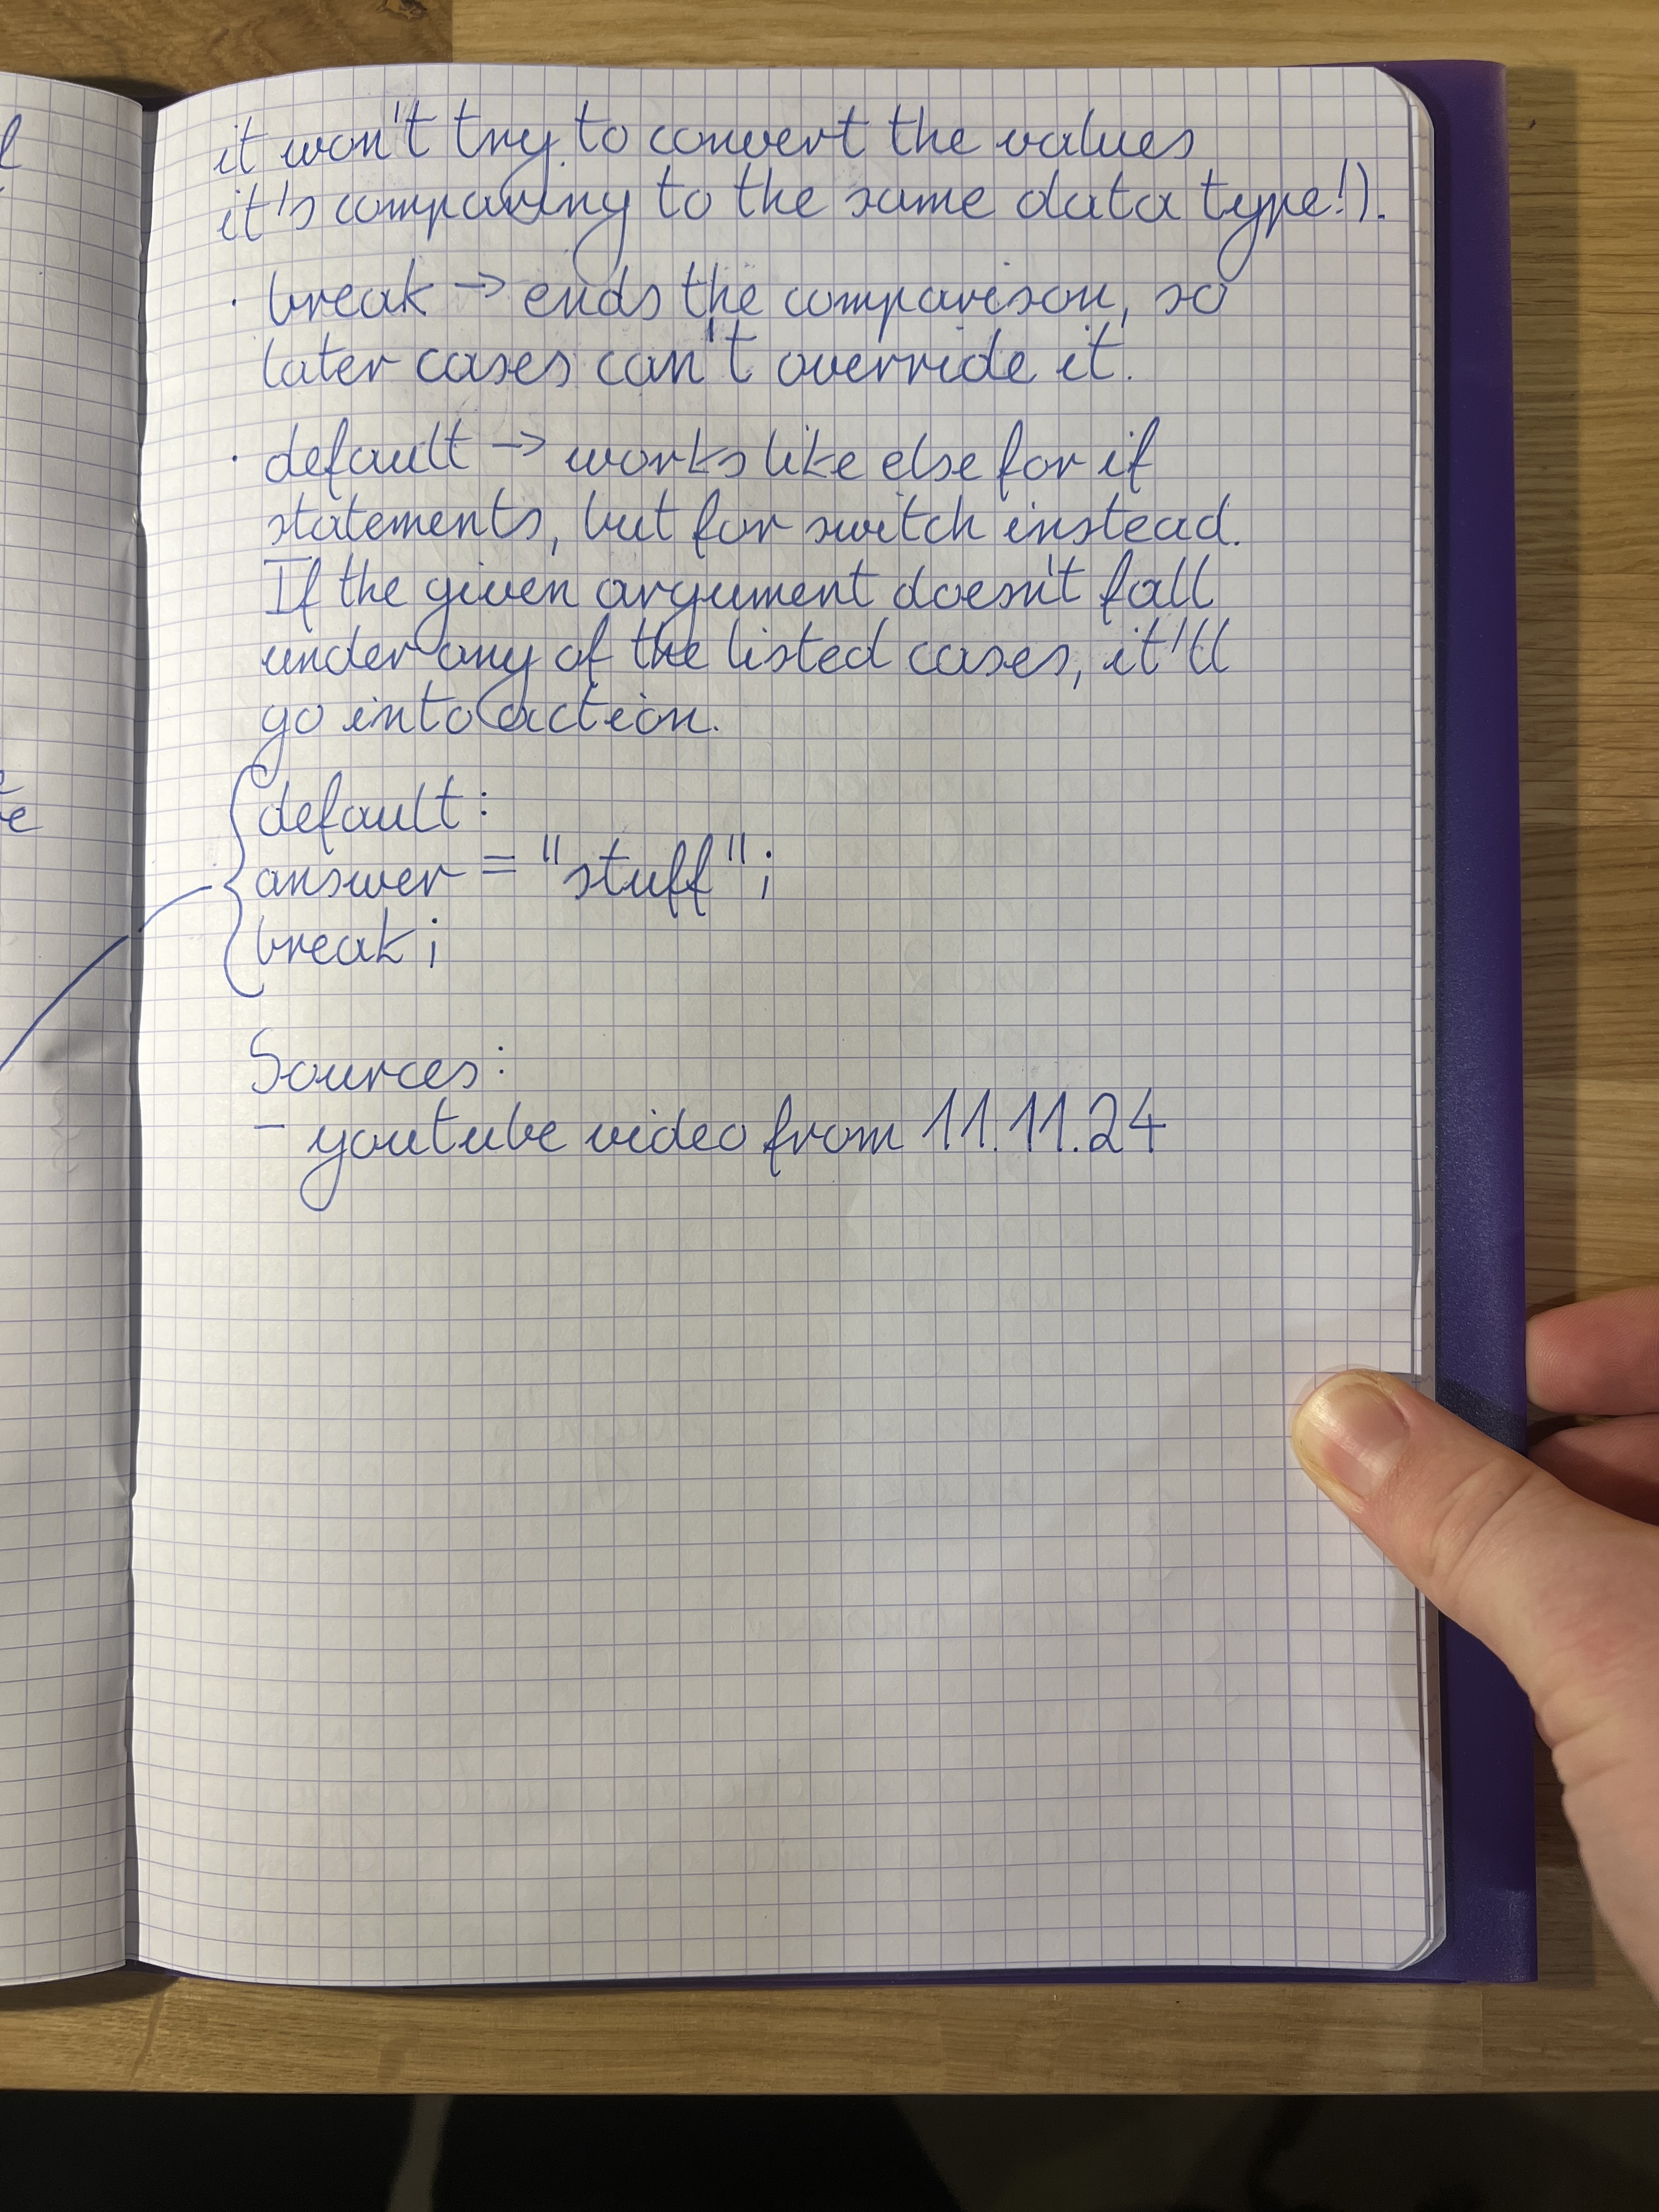 it won't try to convert the values
it's comparing to the same data type!).
· break → ends the comparison, so
later cases can't override it.
· default → works like else for if
statements, but for switch instead.
If the given argument doesn't fall
under any of the listed cases, it'll
go into action.
default:
answer = "stuff";
break;
Sources:
- youtube video from 11.11.24